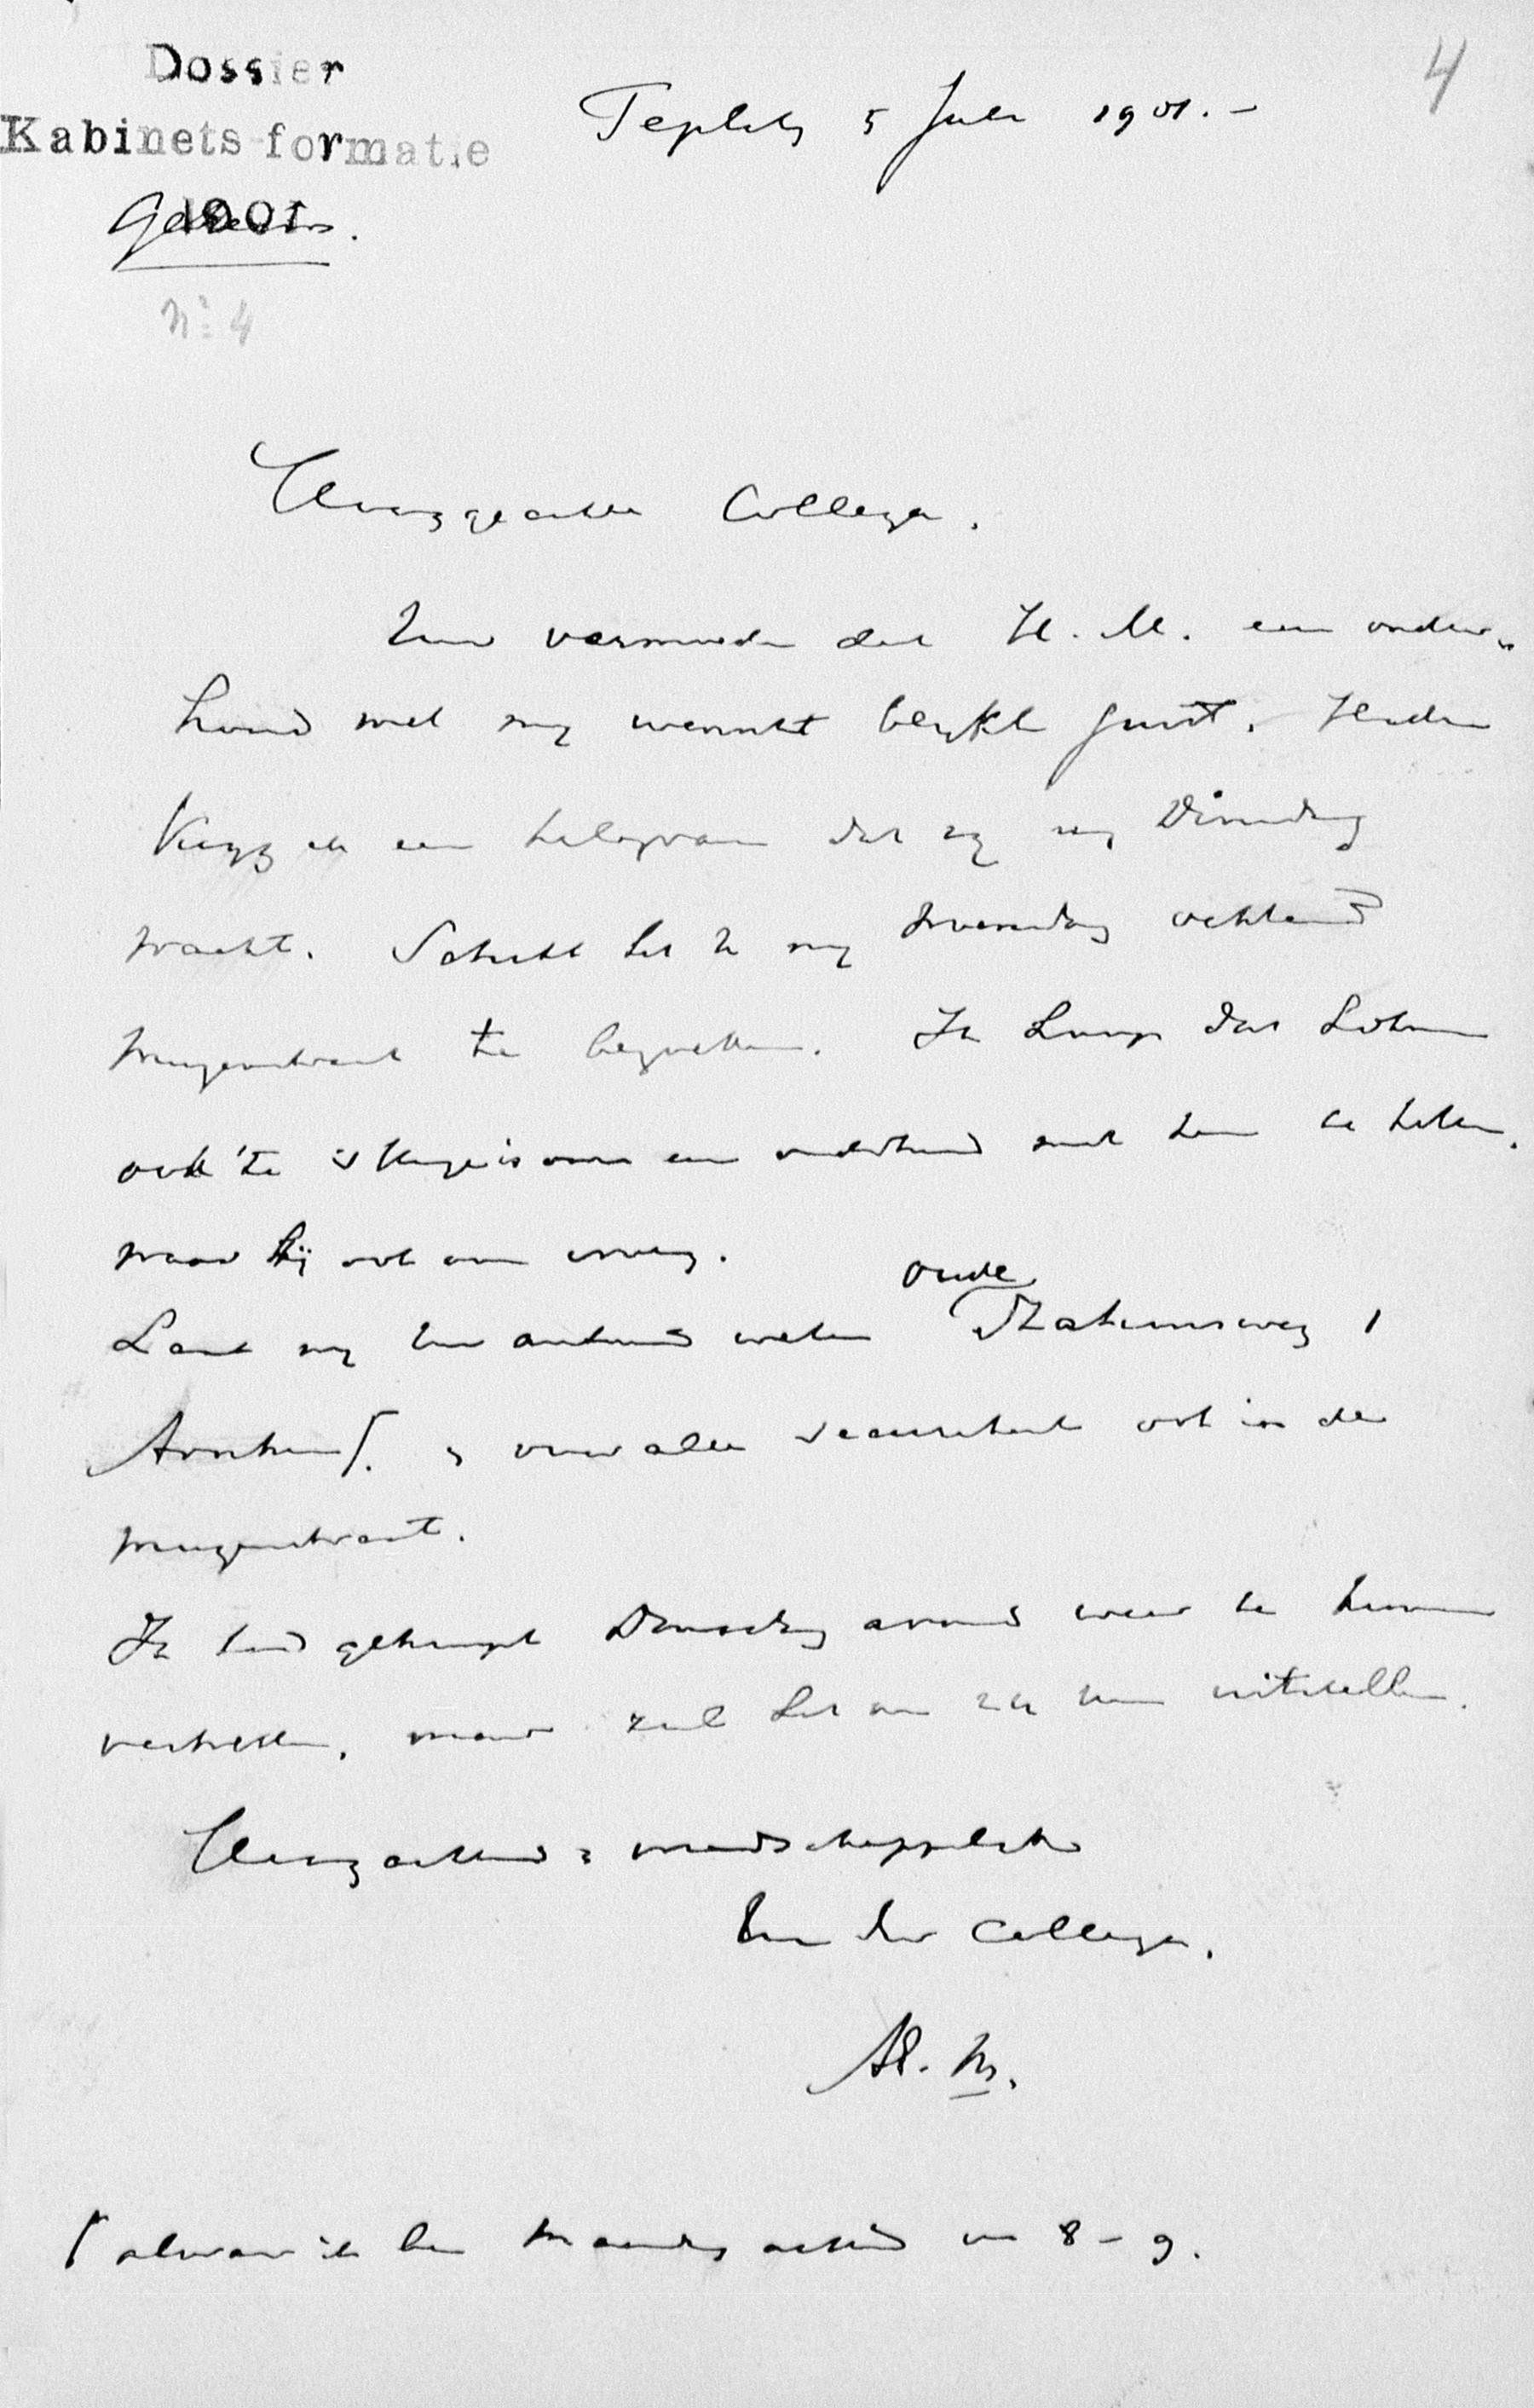 Dossier
Kabinets formatie
1901
Geheim.
No 4
4
Teplitz 5 Juli 1901.-
Hooggeachte Collega.
Uw vermoeden dat H. M. een onder-
houd met mij wenscht blijkt juist. Heden
krijg ik een telegram dat zij mij Dinsdag
wacht. Schikt het U mij woensdag ochtend
te begroeten. Ik hoop dat Lohman
ook te 's een onderhoud met hem te hebben,
waar hij ook om vroeg.
Laat mij Uw antwoord weten oude Stationsweg 1
Arnhem ⌈. & voor alle securiteit ook in de
Ik had gehoopt Dinsdag avond weer te kunnen
vertrekken, maar zal het om U uitstellen.
Hoogachtend & vriendschappelijk
Uw dw Collega.
⌈ alwaar ik ben Maandag avond van 8 - 9.